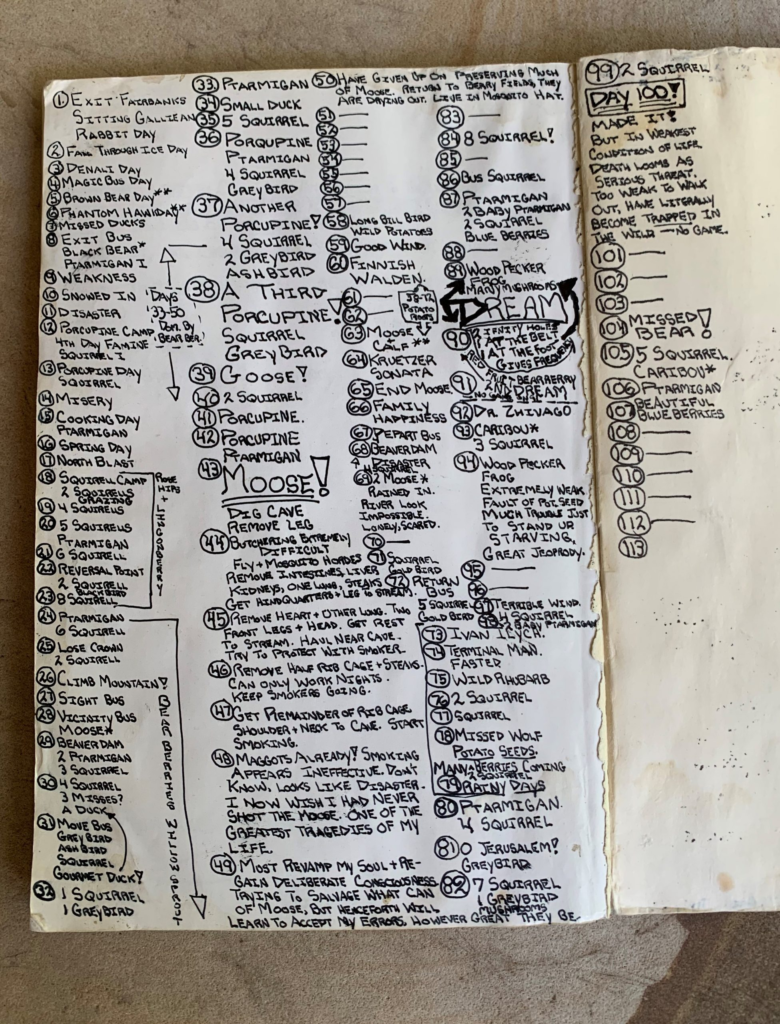 1 EXIT FAIRBANKS
SITTING GALLIEAN
RABBIT DAY
2 FALL THROUGH ICE DAY
3 DENALI DAY
4 MAGIC BUS DAY
5 BROWN BEAR DAY**
6 PHANTOM HAWKDAY**
7 MISSED DUCKS
8 EXIT BUS
BLACK BEAR*
PTARMIGAN 1
9 WEAKNESS
10 SNOWED IN
11 DISASTER
12 PORCUPINE CAMP
4TH DAY FAMINE
SQUIRREL 1
13 PORCUPINE DAY
SQUIRREL
14 MISERY
15 COOKING DAY
PTARMIGAN
16 SPRING DAY
17 NORTH BLAST
18 SQUIRRELL CAMP
2 SQUIRELLS
GRAZING
19 4 SQUIRELLS
20 5 SQUIRELLS
PTARMIGAN
21 6 SQUIRELL
22 REVERSAL POINT
2 SQUIRELL
BLACKBIRD
23 8 SQUIRELL
24 PTARMIGAN
6 SQUIRELL
25 LOSE CROWN
2 SQUIRELL
26 CLIMB MOUNTAIN!
27 SIGHT BUS
28 VICINITY BUS
MOOSE*
29 BEAVERDAM
2 PTARMIGAN
3 SQUIRELL
30 4 SQUIRELL
3 MISSES?
A DUCK
31 MOVE BUS
GREYBIRD
ASHBIRD
SQUIRREL
GOURMET DUCK!
32 1 SQUIRREL
1 GREYBIRD
DAYS
33-50
DOM. BY
BEAR BER.
ROSE HIPS + LINGONBERRY
BEAR BERRIES WILLOW SPROUT
33 PTARMIGAN
34 SMALL DUCK
35 5 SQUIREL
36 PORQUPINE
PTARMIGAN
4 SQUIREL
GREYBIRD
37 ANOTHER
PORCUPINE!
4 SQUIREL
2 GREYBIRD
ASHBIRD
38 A THIRD
PORCUPINE!
SQUIREL
GREYBIRD
39 GOOSE!
40 2 SQUIREL
41 PORCUPINE.
42 PORCUPINE
PTARMIGAN
43 MOOSE!
DIG CAVE
REMOVE LEG
44 BUTCHERING EXTREMELY
DIFFICULT
FLY + MOSQUITO HORDES
REMOVE INTESTINES, LIVER
KIDNEYS, ONE LUNG, STEAKS
GET HINDQUARTERS + LEG TO STREAM.
45 REMOVE HEART + OTHER LUNG. TWO
FRONT LEGS + HEAD. GET REST
TO STREAM. HAUL NEAR CAVE.
TRY TO PROTECT WITH SMOKER.
46 REMOVE HALF RIB CAGE + STEAKS.
CAN ONLY WORK NIGHTS.
KEEP SMOKERS GOING.
47 GET REMAINDER OF RIB CAGE
SHOULDER + NECK TO CAVE. START
SMOKING.
48 MAGGOTS ALREADY! SMOKING
APPEARS INEFFECTIVE. DONT
KNOW, LOOKS LIKE DISASTER.
I NOW WISH I HAD NEVER
SHOT THE MOOSE. ONE OF THE
GREATEST TRAGEDIES OF MY
LIFE.
49 MOST REVAMP MY SOUL + RE-
GAIN DELIBERATE CONSCIOUSNESS
TRYING TO SALVAGE WHAT CAN
OF MOOSE, BUT HENCEFORTH WILL
LEARN TO ACCEPT MY ERRORS, HOWEVER GREAT THEY BE
50 HAVE GIVEN UP ON PRESERVING MUCH
OF MOOSE. RETURN TO BERRY FIELDS, THEY
ARE DRYING OUT. LIVE IN MOSQUITO HAT.
51
52
53
54
55
56
57
58 LONG BILL BIRD
WILD POTATOES
59 GOOD WIND.
60 FINNISH
WALDEN.
61
62
58-72
POTATO
ROOTS
63 MOOSE
CALF**
64 KRUETZER
SONATA
65 END MOOSE
66 FAMILY
HAPPINESS
67 DEPART BUS
68 BEAVERDAM
DISASTER
69 2 MOOSE*
RAINED IN.
RIVER LOOK
IMPOSSIBLE.
LONELY, SCARED.
70
71 SQUIRREL
GOLD BIRD
72 RETURN
BUS
5 SQUIRREL
GOLD BIRD
73 IVAN ILYCH.
74 TERMINAL MAN.
FASTED
75 WILD RHUBARB
76 2 SQUIRREL
77 SQUIRREL
78 MISSED WOLF
POTATO SEEDS.
MANY BERRIES COMING
2 SQUIRREL
79 RAINY DAYS
80 PTARMIGAN.
4 SQUIRREL
81 O JERUSALEM!
GREYBIRD
82 7 SQUIRREL
1 GREYBIRD
MUSHROOMS
83
84 8 SQUIRREL!
85
86 BUS SQUIRREL
87 PTARMIGAN
2 BABY PTARMIGAN
2 SQUIRREL
BLUE BERRIES
88
89 WOOD PECKER
FROG
MANY MUSHROOMS
DREAM
90
AT THE BELT
AT THE FOOT
91 BEARBERRY
AND DREAM
92 DR. ZHIVAGO
93 CARIBOU*
3 SQUIRREL
94 WOOD PECKER
FROG
EXTREMELY WEAK
FAULT OF POT. SEED
MUCH TROUBLE JUST
TO STAND UP
STARVING,
GREAT JEOPRODY.
95
96
97 TERRIBLE WIND.
4 SQUIRREL
98 2 BABY PTARMIGAN
99 2 SQUIRREL
DAY 100!
MADE IT!
BUT IN WEAKEST
CONDITION OF LIFE
DEATH LOOMS AS
SERIOUS THREAT.
TOO WEAK TO WALK
OUT, HAVE LITERALLY
BECOME TRAPPED IN
THE WILD — NO GAME.
101
102
103
104 MISSED
BEAR!
105 5 SQUIRREL
CARIBOU*
106 PTARMIGAN
107 BEAUTIFUL
BLUE BERRIES
108
109
110
111
112
113